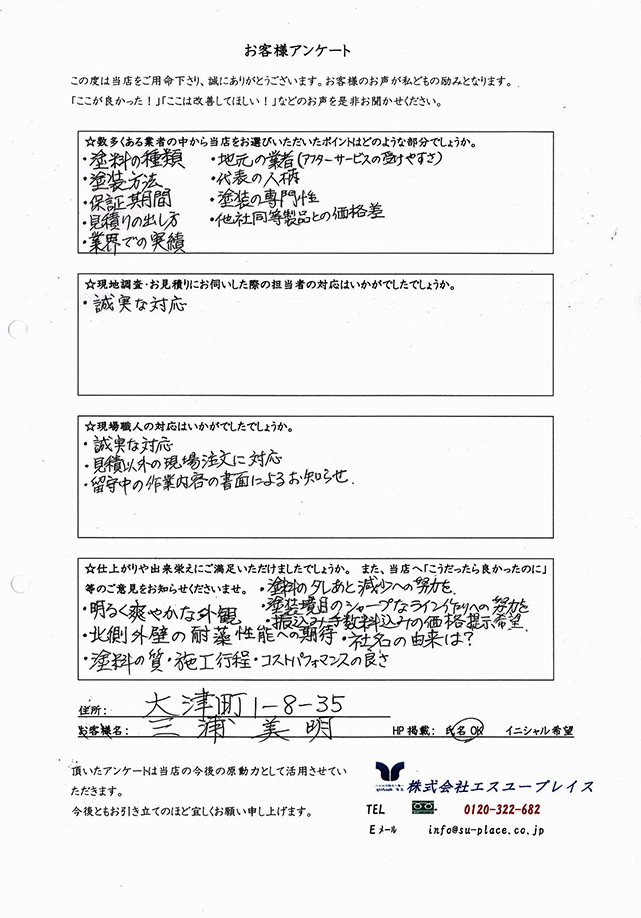 お客様アンケート
この度は当店をご用命下さり、誠にありがとうございます。お客様のお声が私どもの励みとなります。
「ここが良かった！」「ここは改善してほしい！」などのお声を是非お聞かせください。
☆数多くある業者の中から当店をお選びいただいたポイントはどのような部分でしょうか。
・塗料の種類　・地元の業者(アフターサービスの受けやすさ)
・塗装方法　・代表の人柄
・保証期間　・塗装の専門性
・見積りの出し方　・他社同等製品との価格差
・業界での実績
☆現地調査・お見積りにお伺いした際の担当者の対応はいかがでしたでしょうか。
・誠実な対応
☆現場職人の対応はいかがでしたでしょうか。
・誠実な対応
・見積以外の現場注文に対応
・留守中の作業内容の書面によるお知らせ.
☆仕上がりや出来栄えにご満足いただけましたでしょうか。 また、当店へ「こうだったら良かったのに」
等のご意見をお知らせくださいませ。 ・塗料のタレあと減少への努力を.
・明るく爽やかな外観　・塗装境目のシャープなライン作りへの努力を
・振込み手数料込みの価格提示希望.
・北側外壁の耐藻性能への期待・社名の由来は?
・塗料の質・施工行程・コストパフォマンスの良さ
住所： 大津町1-8-35
お客様名： 三浦 美明　HP掲載： 氏名OK　イニシャル希望
頂いたアンケートは当店の今後の原動力として活用させてい
ただきます。
今後ともお引き立てのほど宜しくお願い申し上げます。
株式会社エスユープレイス
TEL 0120-322-682
Eメール info@su-place.co.jp